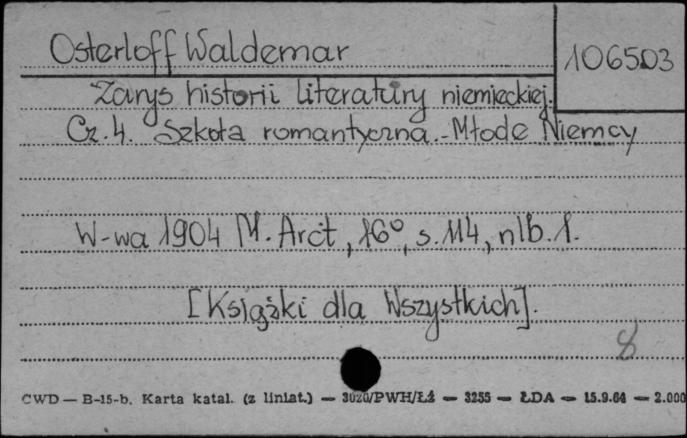 Osterloff Waldemar
106503
Zarys historii literatury niemieckiej.
Cz. 4. Szkoła romantyczna. - Młode Niemcy
W-wa 1904 M. Arct, 16°, s. 114, nlb. 1.
[Książki dla Wszystkich].
8
CWD — B-15-b. Karta katal. (z liniat.) — 3020/PWH/Łż — 3255 — ŁDA — 15.9.64 — 2.000